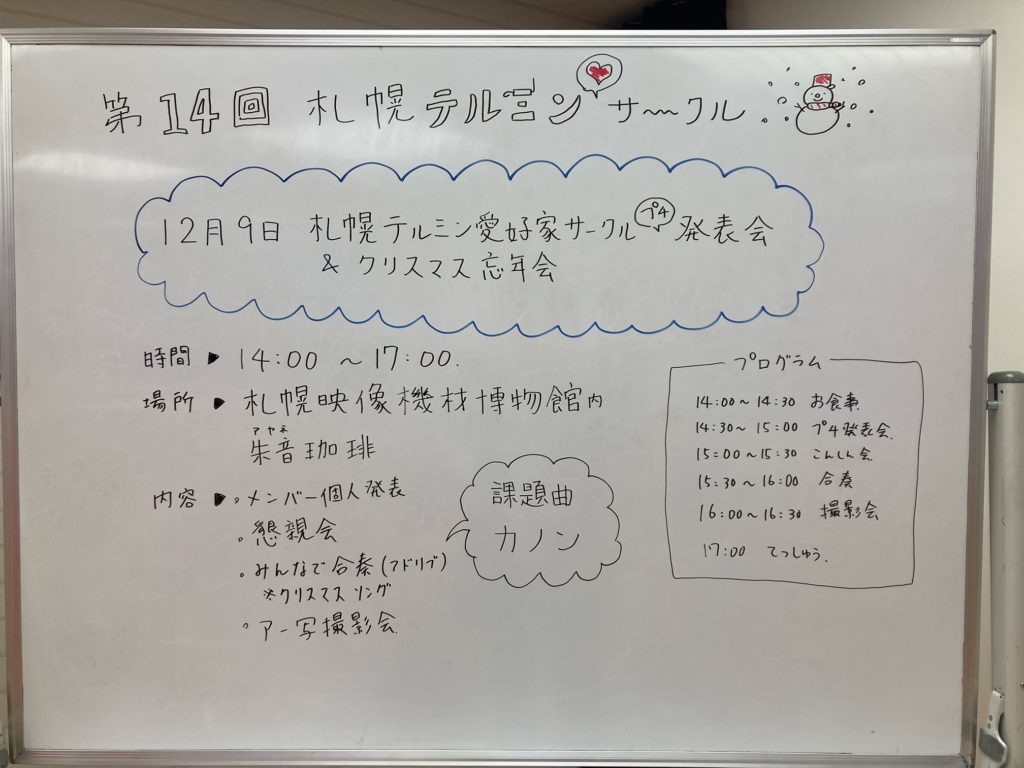 第14回 札幌テルミンサークル
12月9日 札幌テルミン愛好家サークル プチ 発表会
& クリスマス忘年会
時間 ▶ 14:00 ～17:00.
場所 ▶ 札幌映像機材博物館内
アヤネ
朱音珈琲
内容 ▶ 。メンバー個人発表
。懇親会
。みんなで合奏(アドリブ)
※クリスマスソング
。アー写撮影会
課題曲
カノン
プログラム
14:00～14:30 お食事
14:30～15:00 プチ発表会
15:00～15:30 こんしん会
15:30～16:00 合奏
16:00～16:30 撮影会
17:00 てっしゅう.